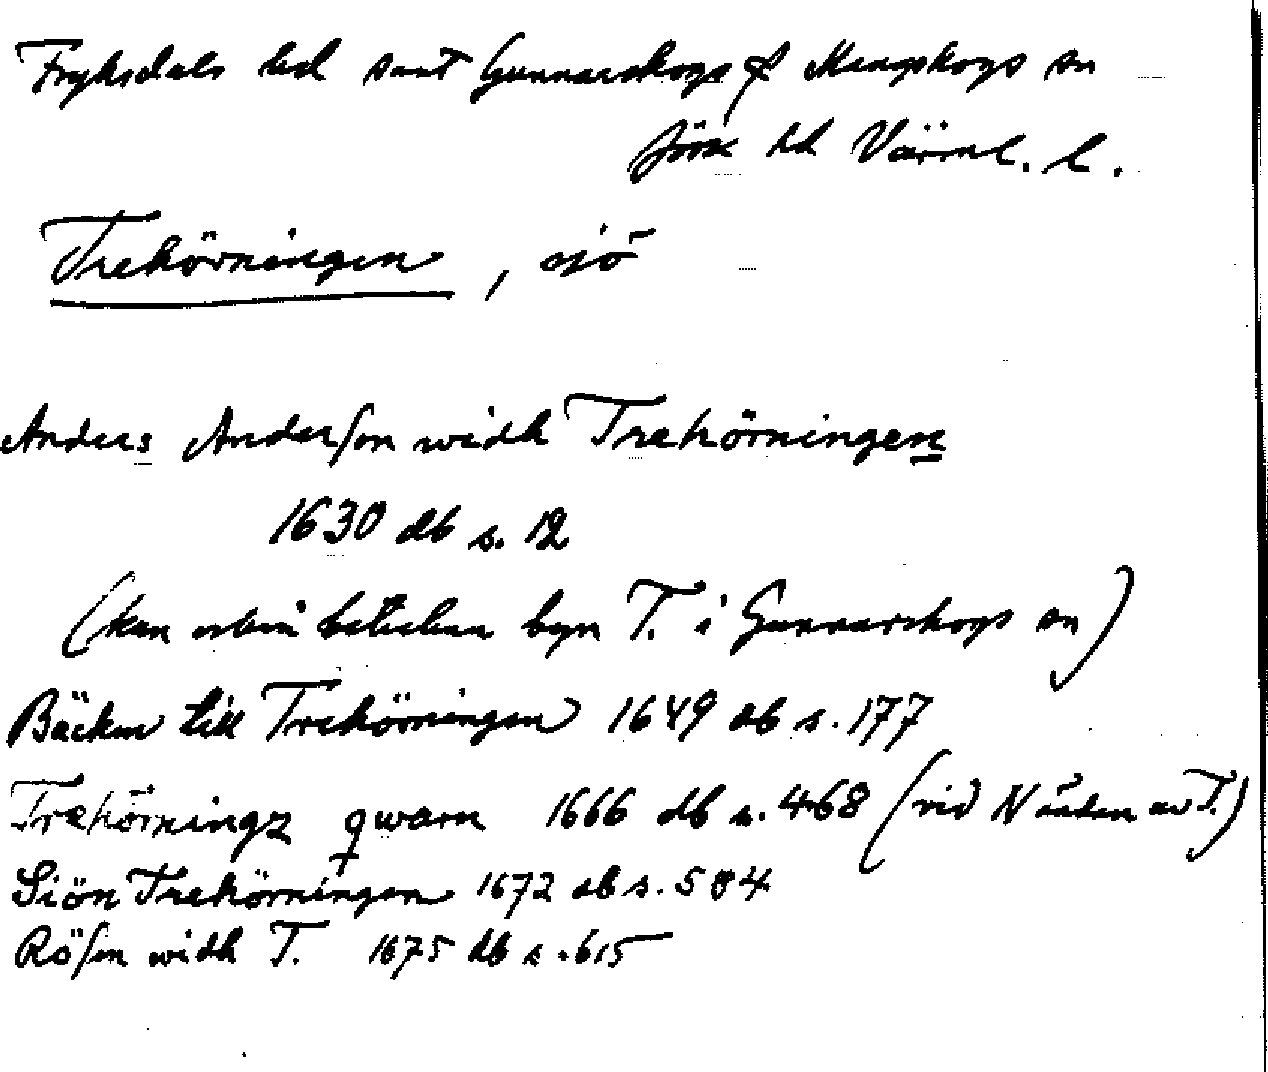 Fryksdals hd samt Gunnarskogs & Mangskogs sn
Jöss hd Värml. l.
Trehörningen, sjö
Anders Anderson widh Trehörningen
1630 db s. 12
(kan beteckna byn T. i Gunnarskogs sn)
Bäcken till Trehörningen 1649 db s. 177
Trehörningz qwarn 1666 db s. 468 (vid N änden av T.)
Siön Trehörningen 1672 db s. 584
Rösen widh T. 1675 db s. 615